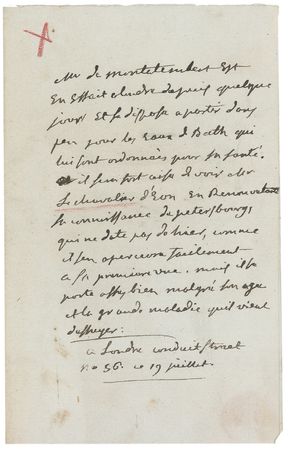 Mr de montalembert Est
En Effait a Londre depuis quelque
jours Et se dispose a partir dans
peu pour les Eaux d Bath qui
lui sont ordonnées pour sa santé.
il sera fort aise d voir Mr
Le chevalier d'Eon En Renouvelant
sa connoissance de petersbourg
qui ne date pas d hier, comme
il s'en apercevra facilement
a la premiere vue. mais il se
porte asses bien malgré son age
et la grande maladie qu'il vient
d'essuyer:
a Londre conduit Street
no 56. ce 19 juillet.